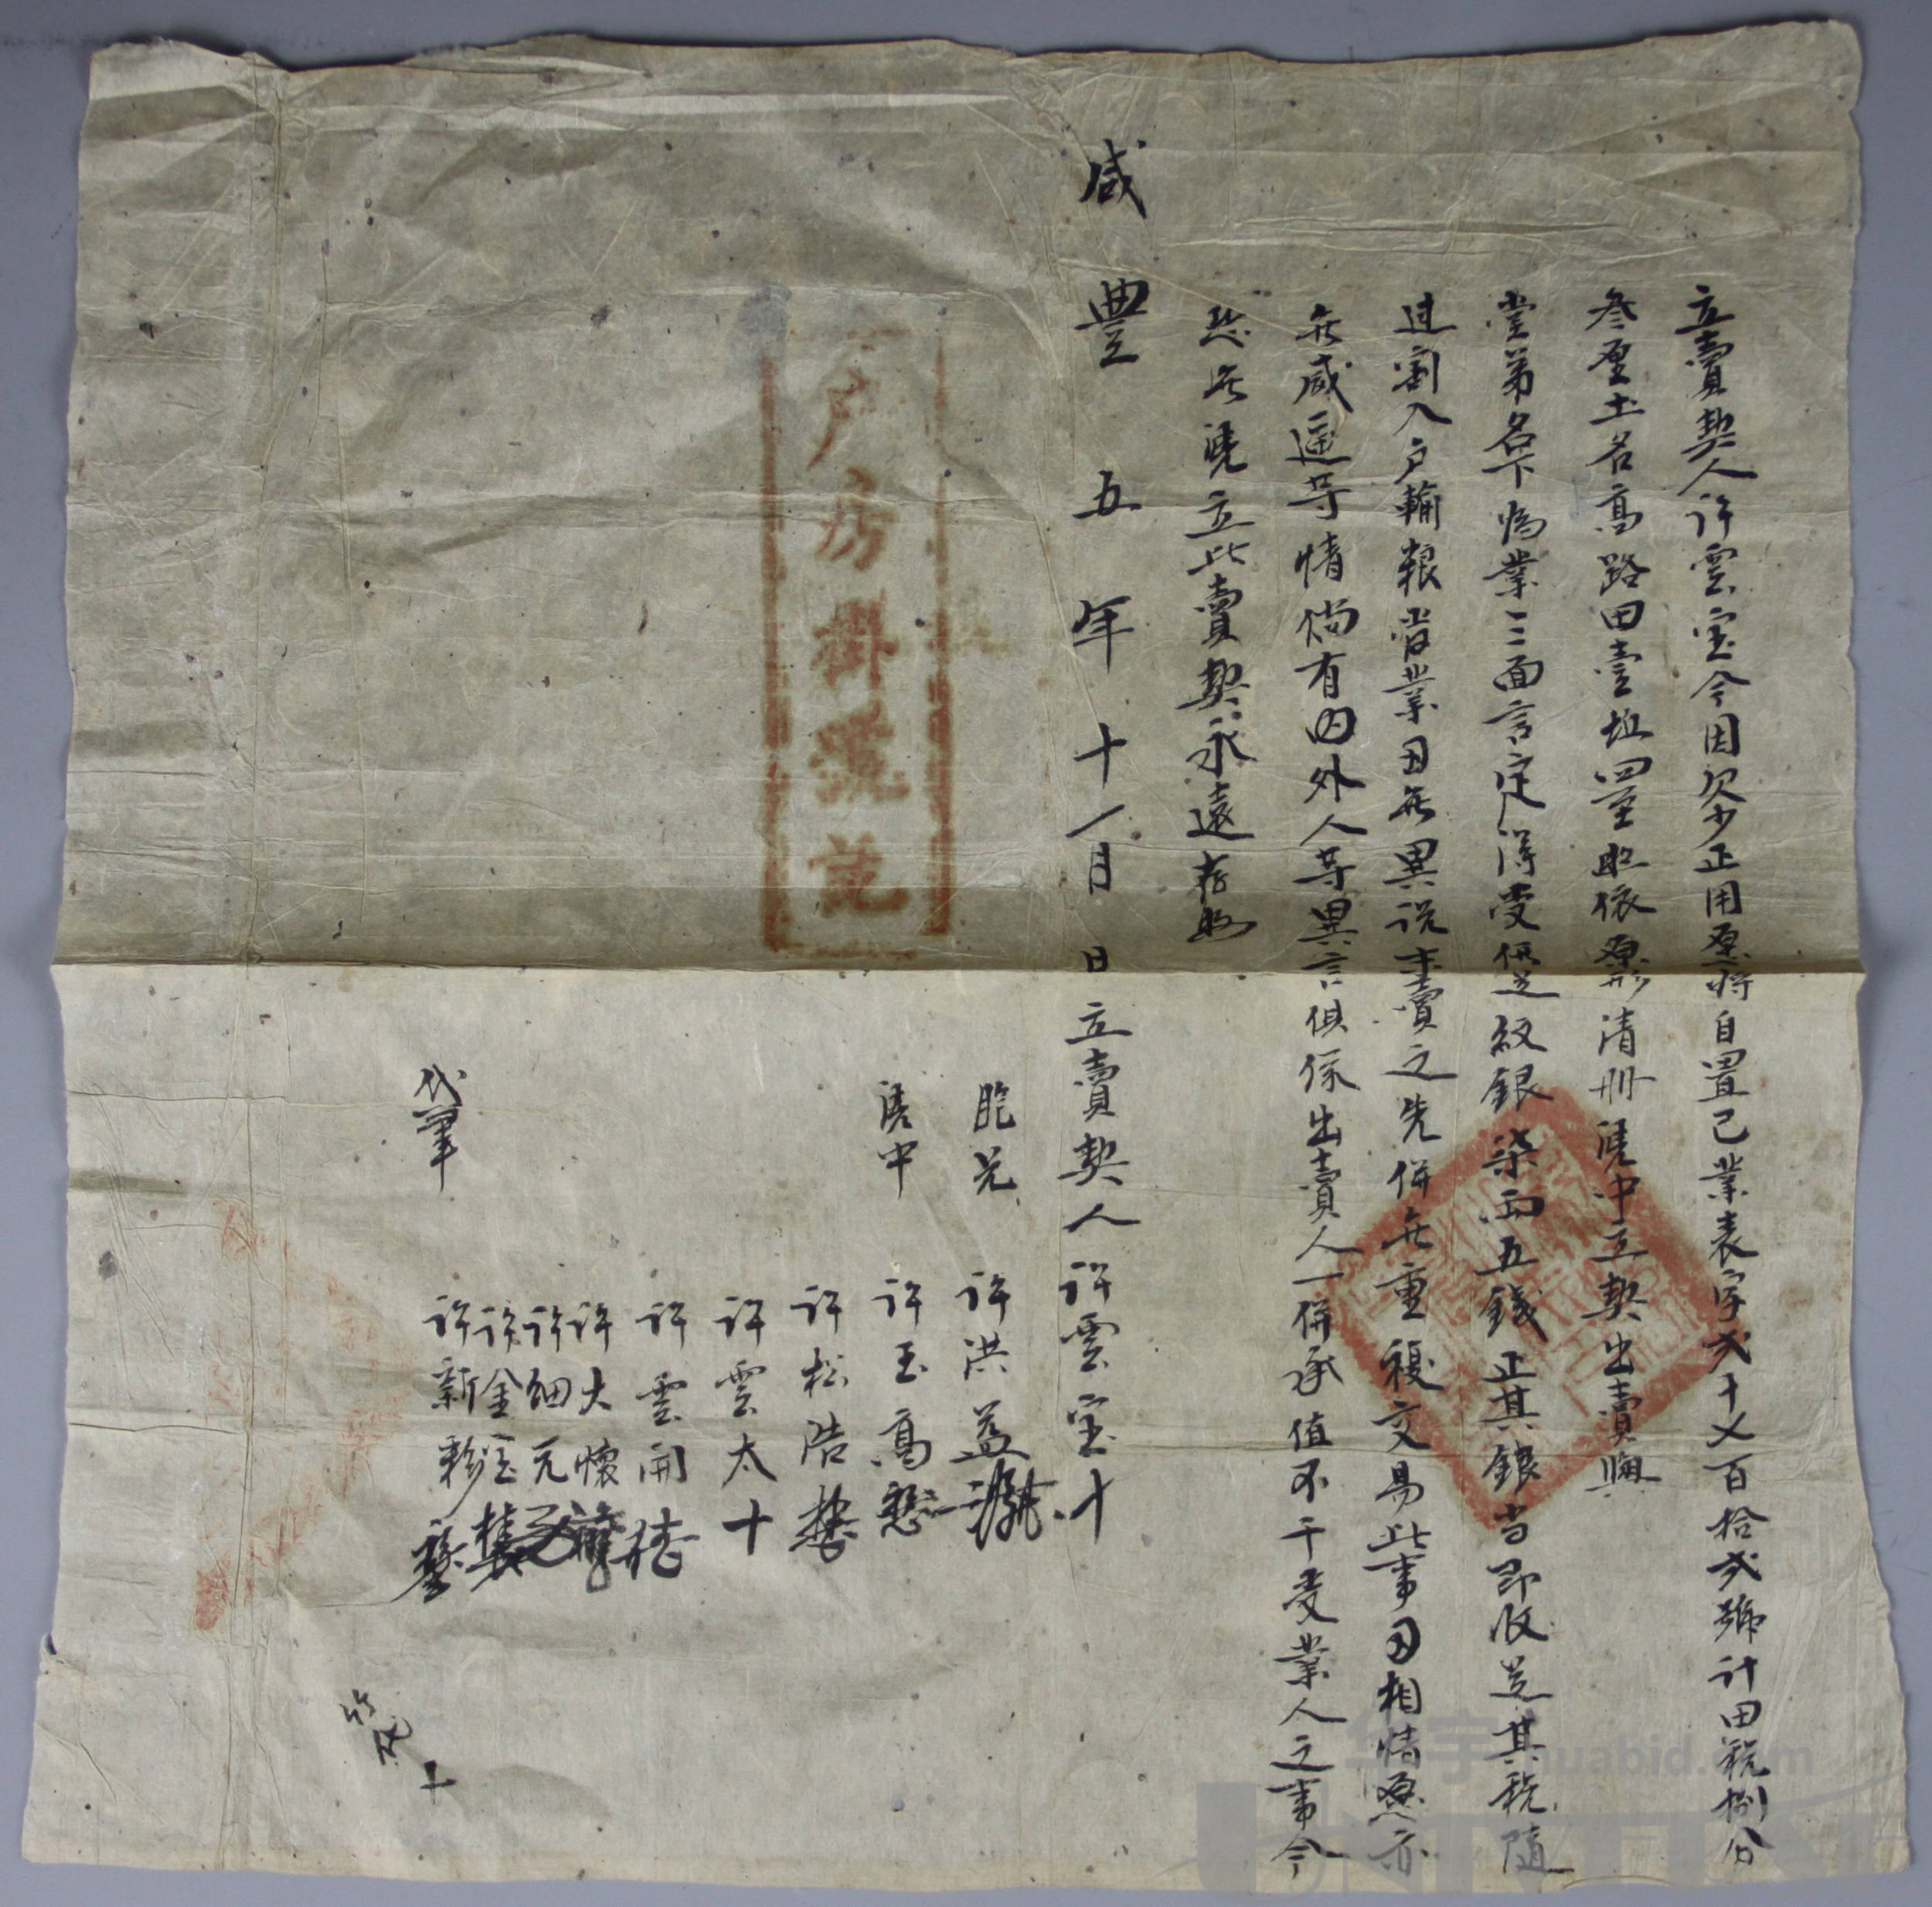 立賣契人許雲宝今因欠少正用愿將自置己業表字弍十乂百拾弍號計田稅捌分
叁厘土名高路田壹坵四至照依原形清册凴中立契出賣與
堂弟名下為業三面言定得受價足紋銀柒両五錢正其銀当即收足其稅随
过割入户輸粮管業因無異说未賣之先併無重複交易此事因相情愿亦
無威逼等情倘有内外人等異言俱係出賣人一併承值不干受業人之事今
恐無凴立此賣契永遠存照
咸豐五年十一月 日立賣契人許雲宝十
胞兄 許洪益
凴中 許玉高
許松浩
許雲太十
許雲開
許大懷
許細元
許金
代筆 許新
户房掛號訖
华宇 huabid.com